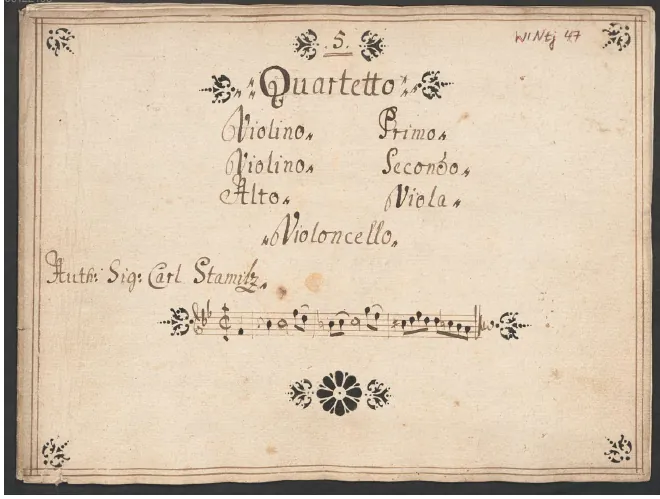 .5.
WINtj 47
Quartetto
Violino Primo
Violino Secondo
Alto Viola
Violoncello
Auth: Sig: Carl Stamitz.